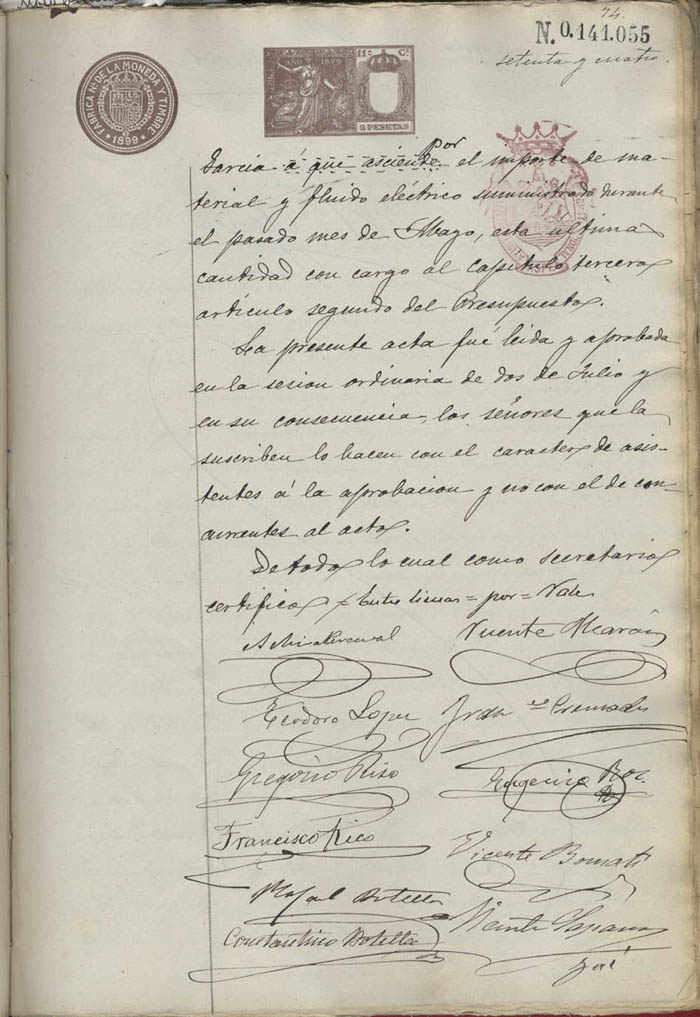 74.
N. 0.141.055
setenta y cuatro.
FABRICA Nal DE LA MONEDA Y TIMBRE
1899
AÑO 1899 11ª Cl
2 PESETAS
por
Garcia á que asciende el importe de ma-
terial y fluido eléctrico suministrado durante
el pasado mes de Mayo, esta ultima
cantidad con cargo al capitulo tercero
artículo segundo del Presupuesto.
La presente acta fué leida y aprobada
en la sesion ordinaria de dos de Julio y
en su consecuencia, los señores que la
suscriben lo hacen con el caracter de asis-
tentes á la aprobacion y no con el de con-
currentes al acto.
De todo lo cual como secretario
certifico Entre lineas = por = Vale
Vicente Alarcón
Teodoro Lopez
Gregorio Rizo Eugenio
Francisco Rico Vicente
Rafael Botella
Constantino Botella Vicente